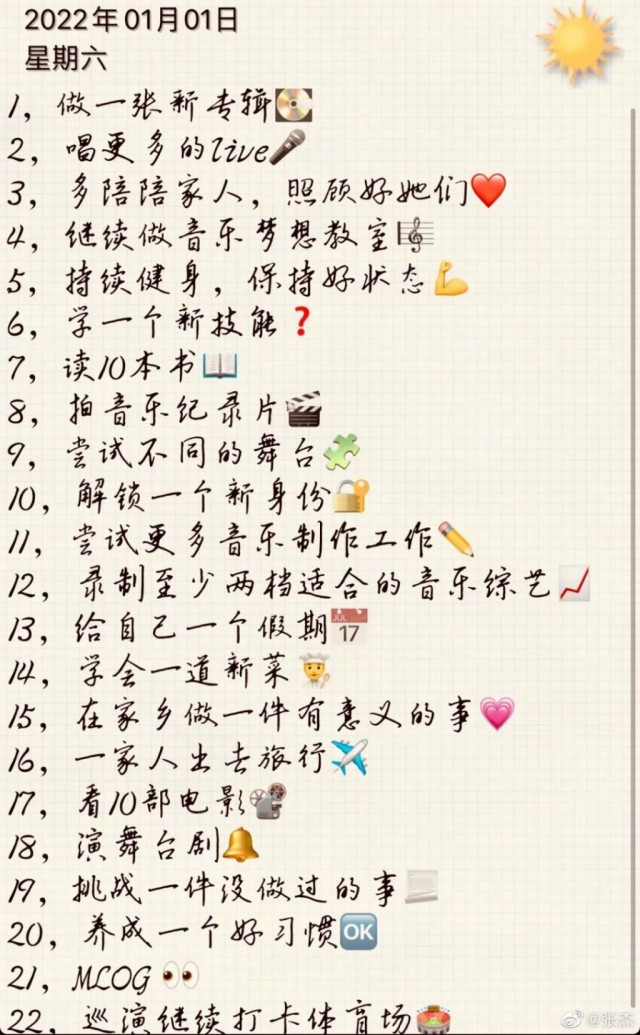 2022年01月01日
星期六
1，做一张新专辑📀
2，唱更多的live🎤
3，多陪陪家人，照顾好她们❤️
4，继续做音乐梦想教室🎼
5，持续健身，保持好状态💪
6，学一个新技能❓
7，读10本书📖
8，拍音乐纪录片🎬
9，尝试不同的舞台🧩
10，解锁一个新身份🔐
11，尝试更多音乐制作工作✏️
12，录制至少两档适合的音乐综艺📈
13，给自己一个假期📅
14，学会一道新菜👨‍🍳
15，在家乡做一件有意义的事💗
16，一家人出去旅行✈️
17，看10部电影📽️
18，演舞台剧🔔
19，挑战一件没做过的事📃
20，养成一个好习惯🆗
21，MLOG👀
22，巡演继续打卡体育场🏟️
@张杰